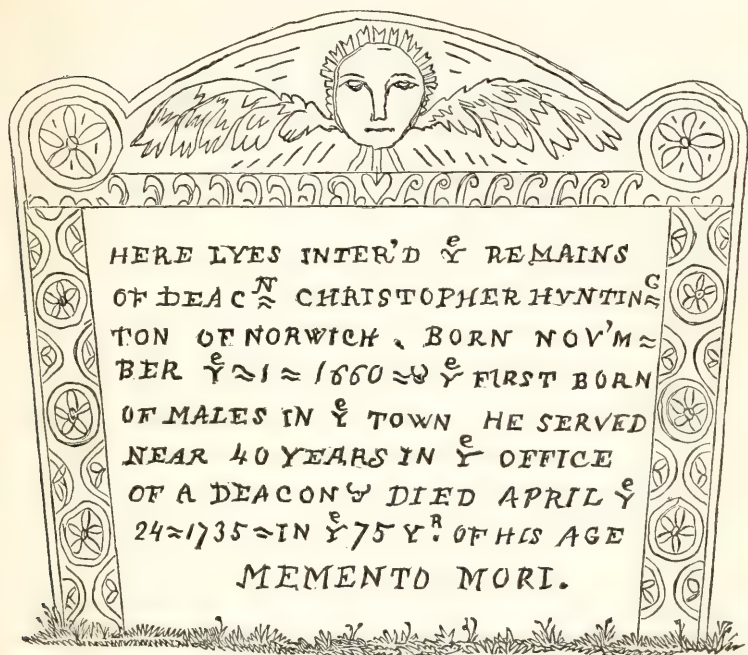 HERE LYES INTER'D Yᵉ REMAINS
OF DEACᴺ≈ CHRISTOPHER HVNTINᴳ≈
TON OF NORWICH. BORN NOV'M≈
BER Yᵉ≈1≈1660≈& Yᵉ FIRST BORN
OF MALES IN Yᵉ TOWN HE SERVED
NEAR 40 YEARS IN Yᵉ OFFICE
OF A DEACON & DIED APRIL Yᵉ
24≈1735≈IN Yᵉ 75 Yᴿ. OF HIS AGE
MEMENTO MORI.